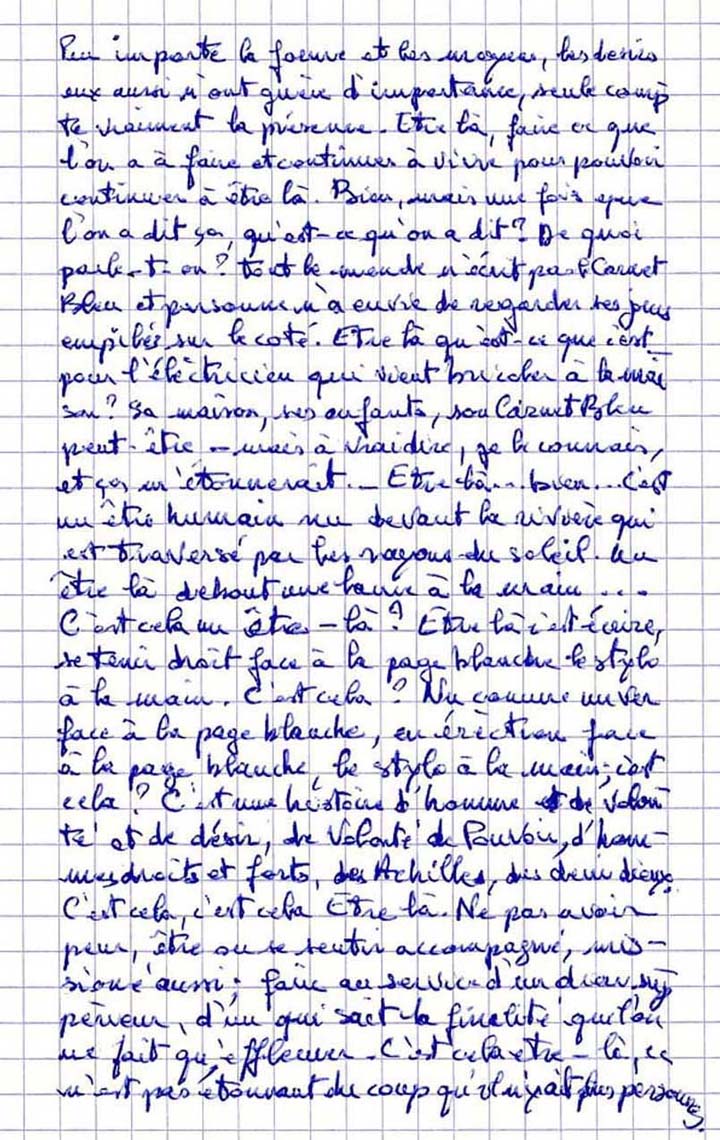 Peu importe la forme et les moyens, les désirs
eux aussi n'ont guère d'importance, seule comp
te vraiment la présence. Etre là, faire ce que
l'on a à faire et continuer à vivre pour pouvoir
continuer à être là. Bien, mais une fois que
l'on a dit ça, qu'est-ce qu'on a dit? De quoi
parle-t-on? tout le monde n'écrit pas l'Carnet
Bleu et personne n'a envie de regarder ses
empilés sur le coté. Etre là qu'est-ce que c'est
pour l'électricien qui vient bricoler à la mai
son? Sa maison, ses enfants, son Carnet Bleu
peut-être – mais à vrai dire, je le connais,
et ça m'étonnerait. – Etre là... bien... C'est
un être humain nu devant la rivière qui
est traversé par les rayons du soleil. Un
être là debout une lance à la main ...
C'est cela un être-là? Etre là c'est écrire,
se tenir droit face à la page blanche le stylo
à la main. C'est cela? Nu comme un ver
face à la page blanche, en érection face
à la page blanche, le stylo à la main; c'est
cela? C'est une histoire d'homme et de volon
té et de désir, de Volonté de Pouvoir, d'hom-
mes droits et forts, des Achilles, des demi dieux.
C'est cela, c'est cela Etre là. Ne pas avoir
peur, être ou se sentir accompagné, mis-
sioné aussi; faire au service d'un dieu sup
périeur, d'un qui sait la finalité que l'on
ne fait qu'effleurer. C'est cela etre-là, ce
n'est pas étonnant du coup qu'il n'y ait plus personne.